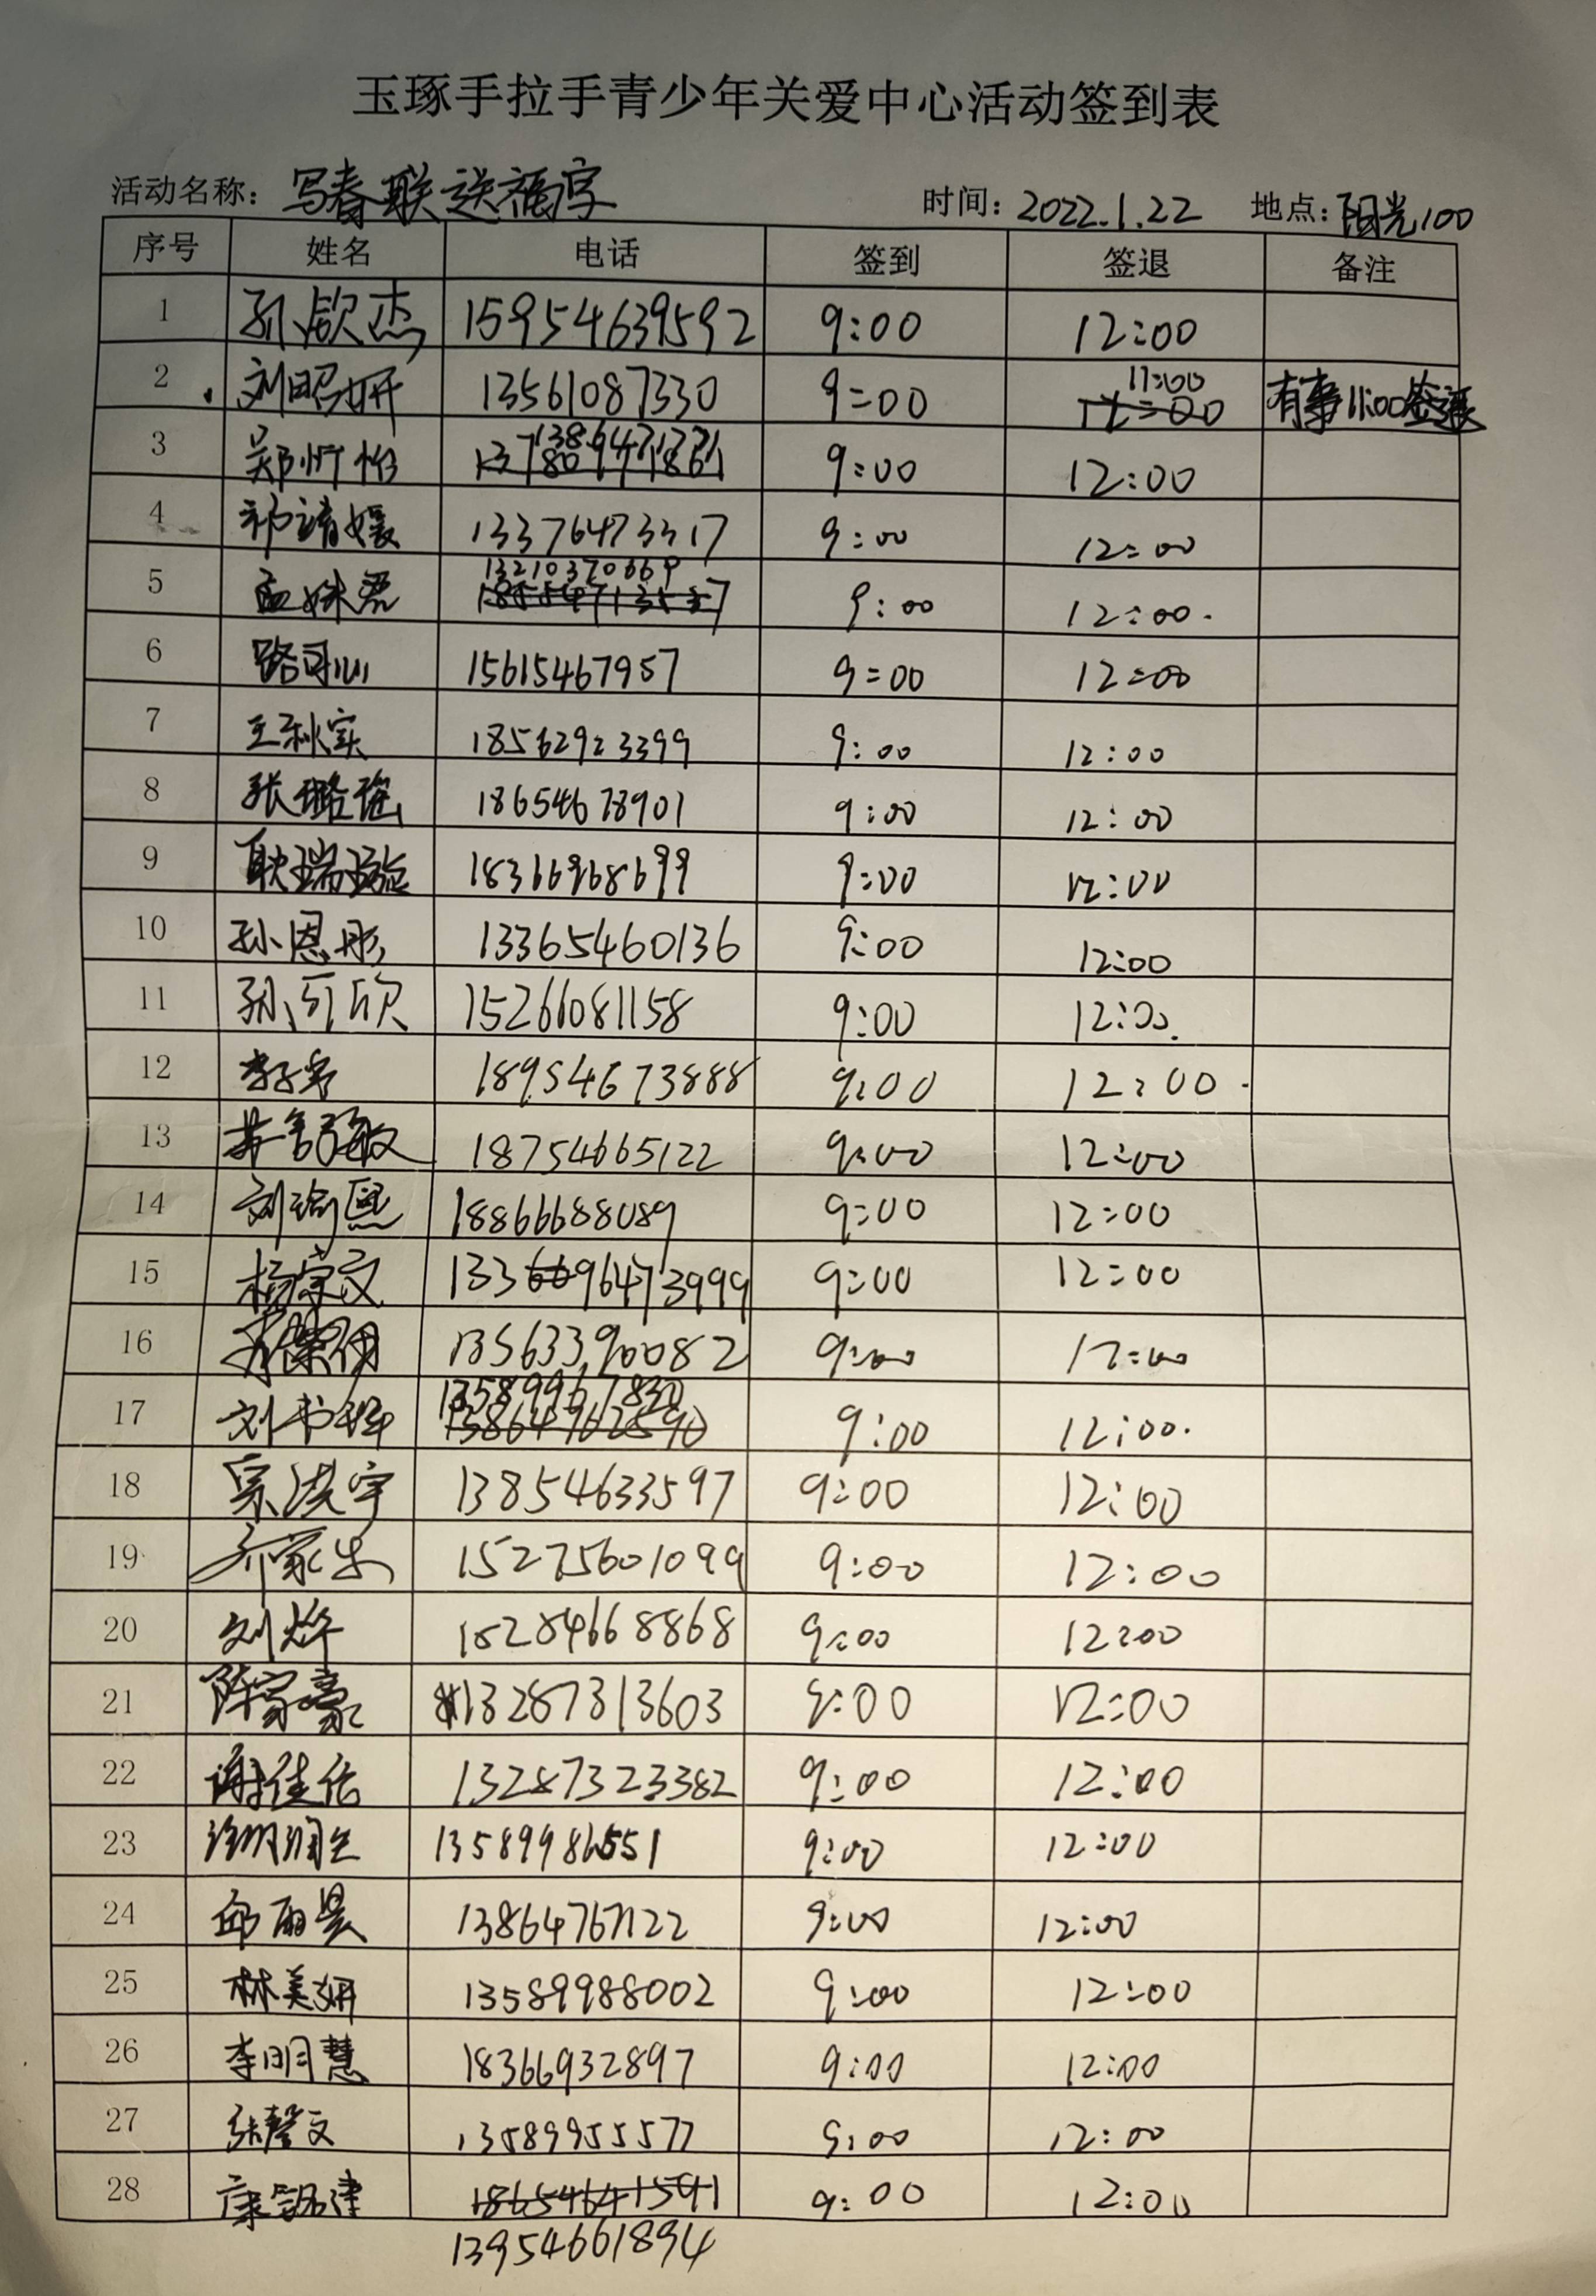 玉琢手拉手青少年关爱中心活动签到表
活动名称：写春联送福字 时间：2022.1.22 地点：阳光100
序号 姓名 电话 签到 签退 备注
1 孙钦杰 15954639592 9:00 12:00
2 刘昭妍 13561087330 9:00 11:00 有事11:00签退
3 郑忻怡 9:00 12:00
4 祁靖媛 13376473317 9:00 12:00
5 孟姝君 13210370669 9:00 12:00.
6 路可心 15615467957 9:00 12:00
7 王秋实 18562923399 9:00 12:00
8 张璐瑶 18654678901 9:00 12:00
9 耿瑞璇 18366968699 9:00 12:00
10 孙恩彤 13365460136 9:00 12:00
11 孙可欣 15266081158 9:00 12:00.
12 18954673888 9:00 12:00
13 18754665122 9:00 12:00
14 刘瑜熙 18866688089 9:00 12:00
15 杨宗文 9:00 12:00
16 13563390082 9:00 12:00
17 刘书 13589967830 9:00 12:00.
18 宗洪宇 13854633597 9:00 12:00
19 齐家乐 15275601099 9:00 12:00
20 刘烨 18284668868 9:00 12:00
21 陈家豪 13287313603 9:00 12:00
22 谢佳佑 13287323382 9:00 12:00
23 13589986551 9:00 12:00
24 邱雨昊 13864767122 9:00 12:00
25 林美妍 13589988002 9:00 12:00
26 李明慧 18366932897 9:00 12:00
27 张馨文 13589955577 9:00 12:00
28 康津 18654641541 9:00 12:00
13954661894